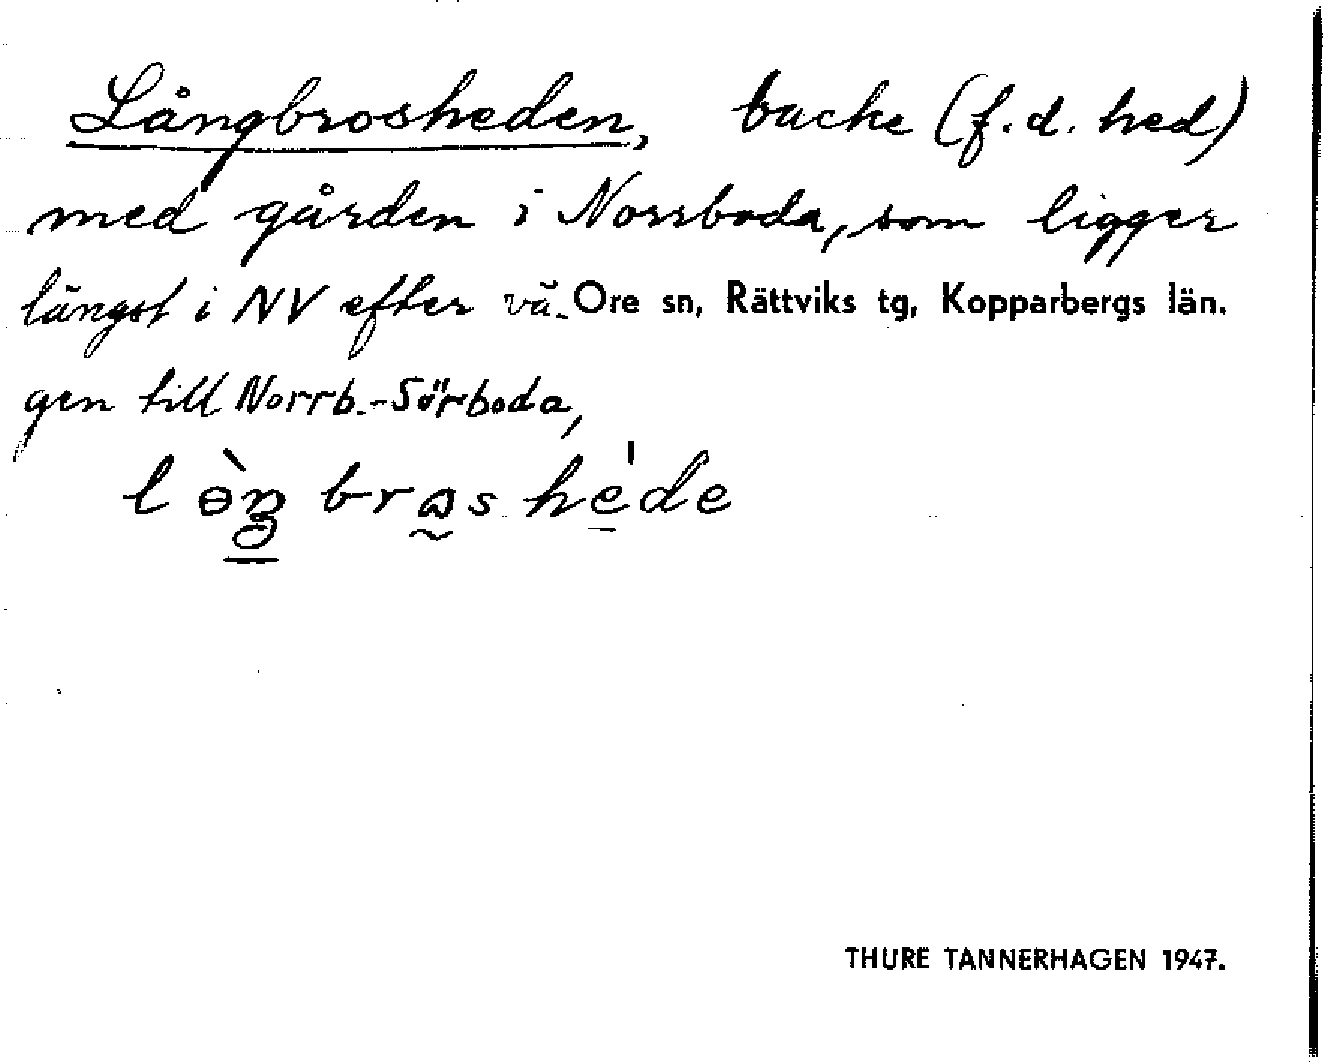 Långbrosheden, backe (f.d. hed)
med gården i Norrboda, som ligger
längst i NV efter vä- Ore sn, Rättviks tg, Kopparbergs län.
gen till Norrb.-Sörboda,
THURE TANNERHAGEN 1947.